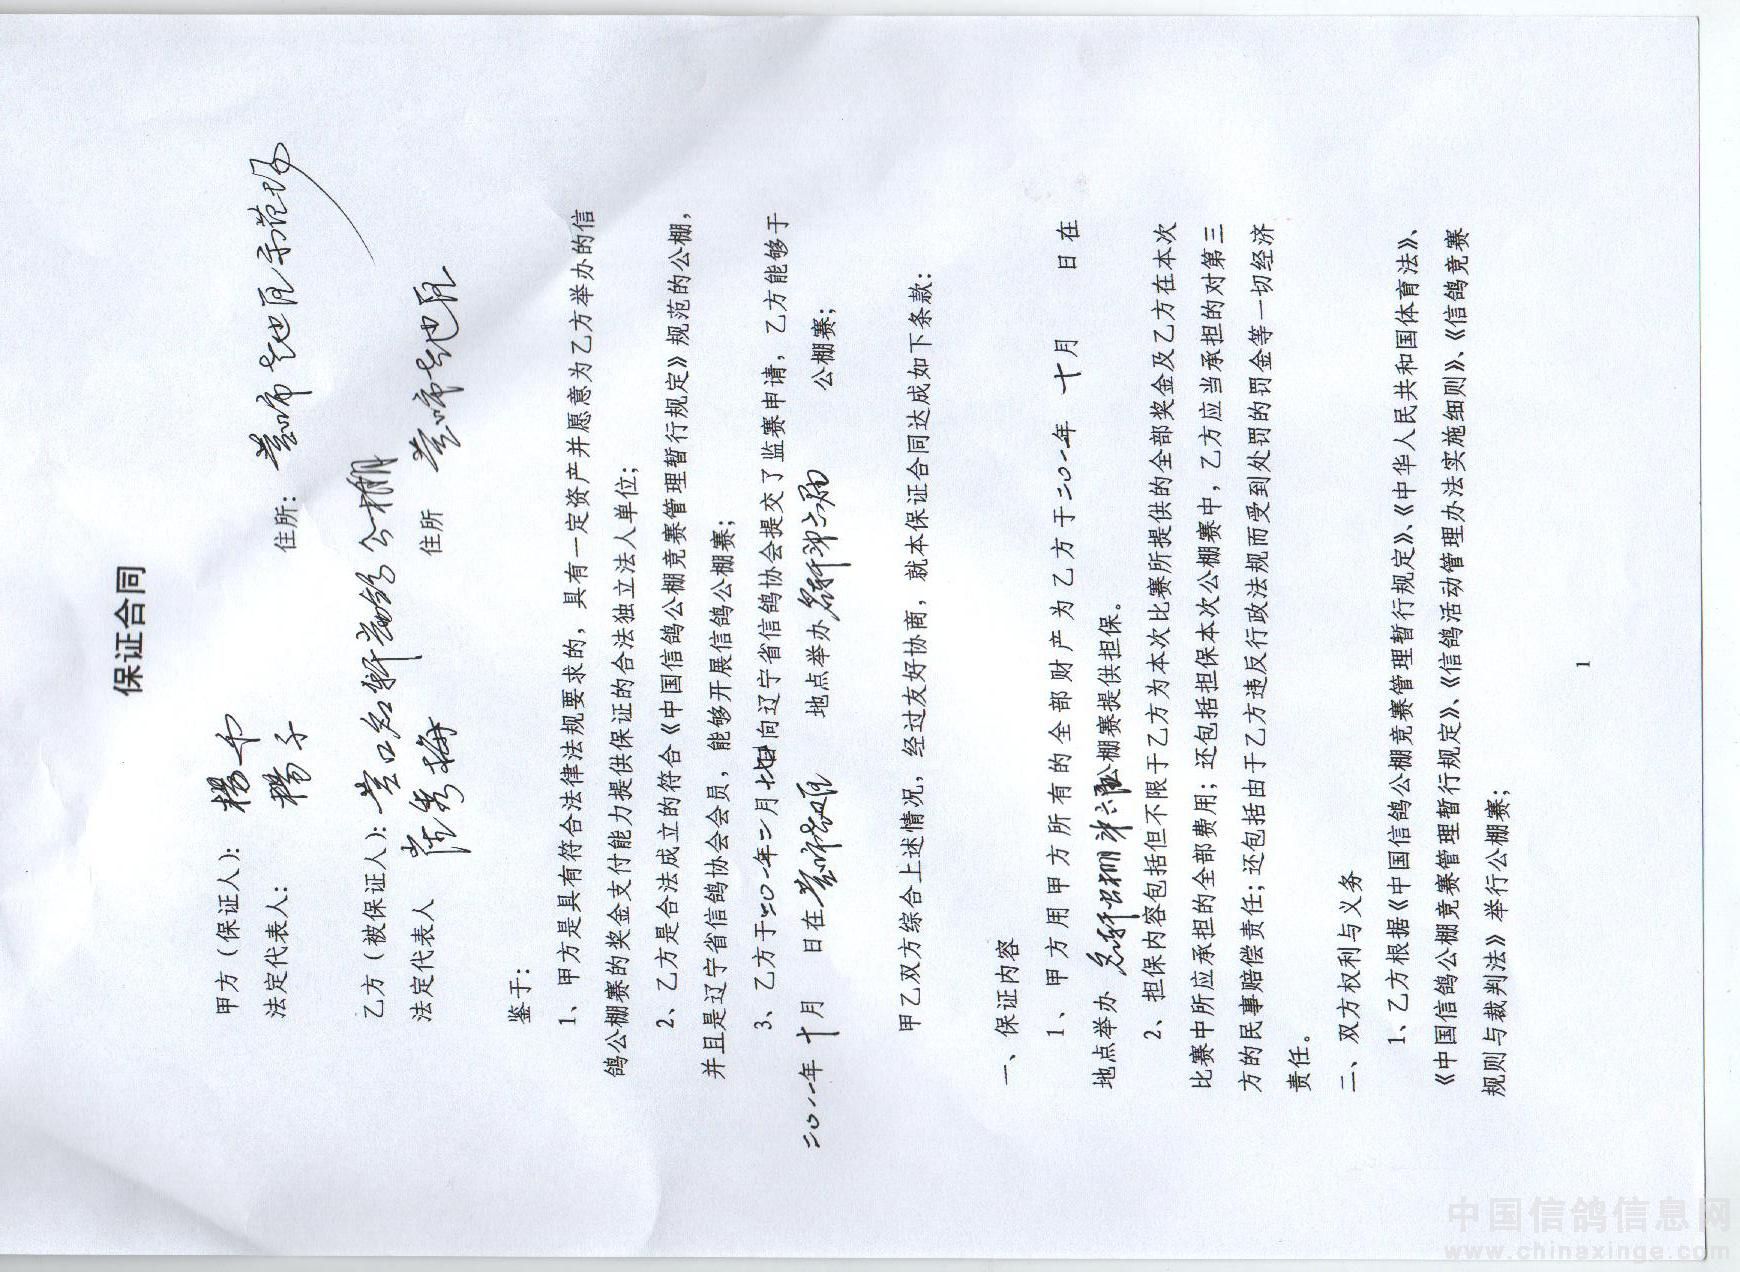 保证合同
甲方（保证人）：
住所：
法定代表人：
乙方（被保证人）：营口名轩赛鸽公棚
法定代表人
住所
鉴于：
1、甲方是具有符合法律法规要求的，具有一定资产并愿意为乙方举办的信
鸽公棚赛的奖金支付能力提供保证的合法独立法人单位；
2、乙方是合法成立的符合《中国信鸽公棚竞赛管理暂行规定》规范的公棚，
并且是辽宁省信鸽协会会员，能够开展信鸽公棚赛；
3、乙方于二0一一年二月 日向辽宁省信鸽协会提交了监赛申请，乙方能够于
二0一一年 十月 日在 地点举办名轩第六届 公棚赛；
甲乙双方综合上述情况，经过友好协商，就本保证合同达成如下条款：
一、保证内容
1、甲方用甲方所有的全部财产为乙方于二0一一年 十月 日在
地点举办 名轩公棚第六届公棚赛提供担保。
2、担保内容包括但不限于乙方为本次比赛所提供的全部奖金及乙方在本次
比赛中所应承担的全部费用；还包括担保本次公棚赛中，乙方应当承担的对第三
方的民事赔偿责任；还包括由于乙方违反行政法规而受到处罚的罚金等一切经济
责任。
二、双方权利与义务
1、乙方根据《中国信鸽公棚竞赛管理暂行规定》、《中华人民共和国体育法》、
《中国信鸽公棚竞赛管理暂行规定》、《信鸽活动管理办法实施细则》、《信鸽竞赛
规则与裁判法》举行公棚赛；
1
中国信鸽信息网
www.chinaxinge.com